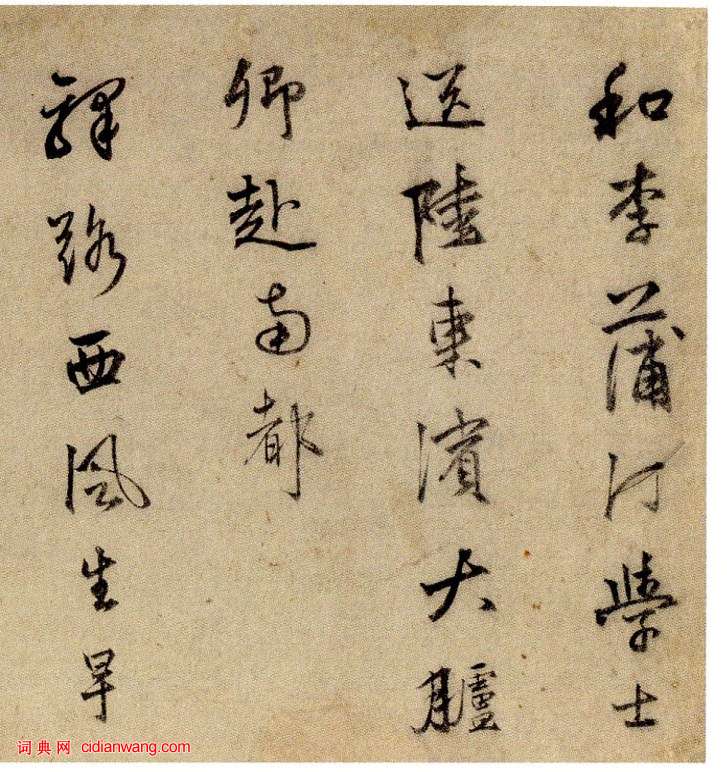 和李蒲汀學士
送陸東濱大臚
卿赴南都
驛路西風生早
词典网 cidianwang.com